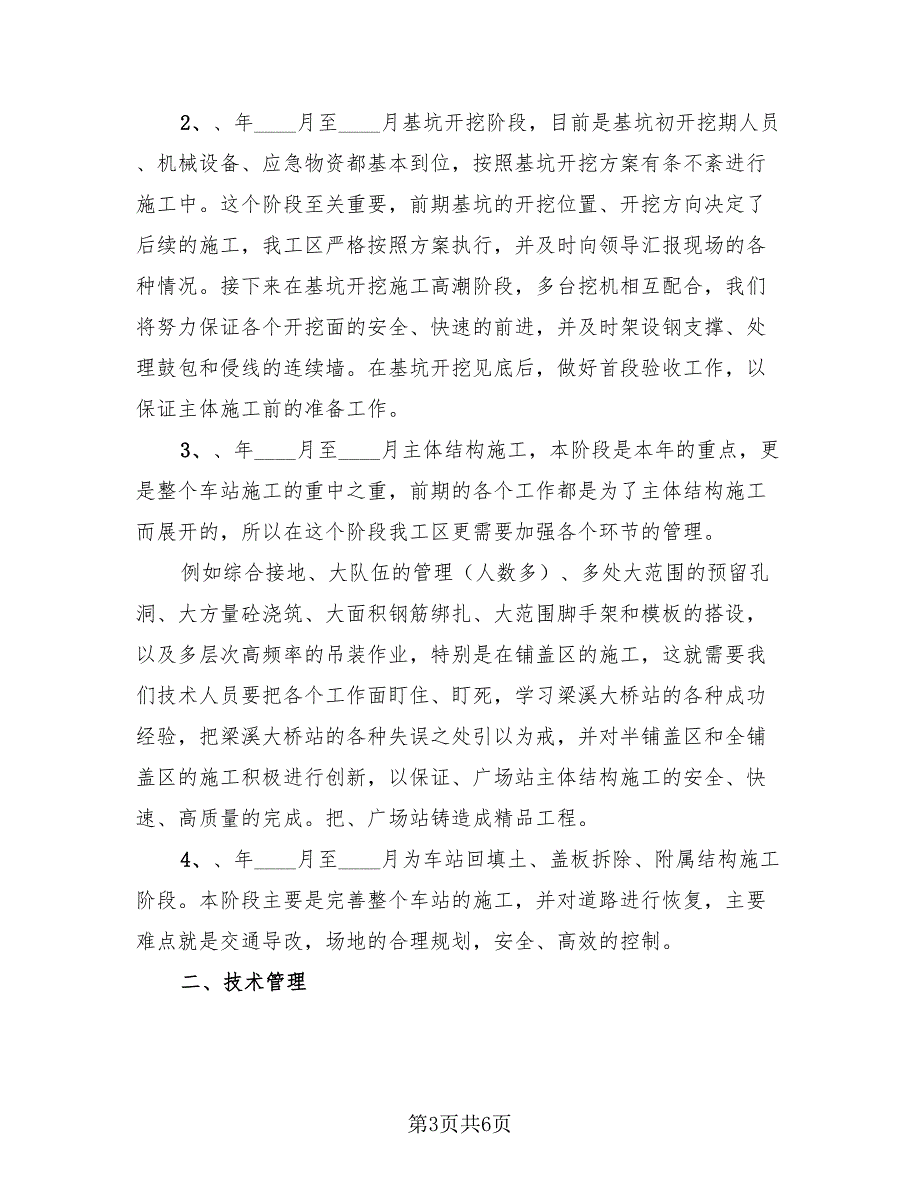 2、、年____月至____月基坑开挖阶段，目前是基坑初开挖期人员
、机械设备、应急物资都基本到位，按照基坑开挖方案有条不紊进行
施工中。这个阶段至关重要，前期基坑的开挖位置、开挖方向决定了
后续的施工，我工区严格按照方案执行，并及时向领导汇报现场的各
种情况。接下来在基坑开挖施工高潮阶段，多台挖机相互配合，我们
将努力保证各个开挖面的安全、快速的前进，并及时架设钢支撑、处
理鼓包和侵线的连续墙。在基坑开挖见底后，做好首段验收工作，以
保证主体施工前的准备工作。
3、、年____月至____月主体结构施工，本阶段是本年的重点，更
是整个车站施工的重中之重，前期的各个工作都是为了主体结构施工
而展开的，所以在这个阶段我工区更需要加强各个环节的管理。
例如综合接地、大队伍的管理（人数多）、多处大范围的预留孔
洞、大方量砼浇筑、大面积钢筋绑扎、大范围脚手架和模板的搭设，
以及多层次高频率的吊装作业，特别是在铺盖区的施工，这就需要我
们技术人员要把各个工作面盯住、盯死，学习梁溪大桥站的各种成功
经验，把梁溪大桥站的各种失误之处引以为戒，并对半铺盖区和全铺
盖区的施工积极进行创新，以保证、广场站主体结构施工的安全、快
速、高质量的完成。把、广场站铸造成精品工程。
4、、年____月至____月为车站回填土、盖板拆除、附属结构施工
阶段。本阶段主要是完善整个车站的施工，并对道路进行恢复，主要
难点就是交通导改，场地的合理规划，安全、高效的控制。
二、技术管理
第3页共6页